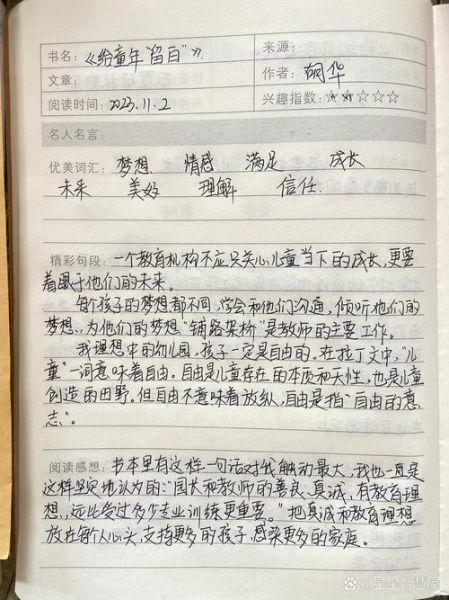 书名：《给童年“留白”》 来源：
文章： 作者：胡华
阅读时间：2023.11.2 兴趣指数：☆☆☆☆☆
名人名言：
优美词汇：梦想 情感 满足 成长
未来 美好 理解 信任
精彩句段：一个教育机构不应只关心儿童当下的成长，更要
着眼于他们的未来。
每个孩子的梦想都不同，学会和他们沟通，倾听他们的
梦想，为他们的梦想“铺路架桥”是教师的主要工作。
我理想中的幼儿园，孩子一定是自由的，在拉丁文中，“儿
童”一词意味着自由。自由是儿童存在的本质和天性，也是儿童
创造的田野。但自由不意味着放纵，自由是指“自由的意
志”。
阅读感想：书本里有这样一句话对我触动最大，我也一直是
这样坚定地认为的：“园长和教师的善良、真诚，有教育理
想，远比受过多少专业训练更重要。”把真诚和教育理想
放在每个人心头，支持更多的孩子，感染更多的家庭。